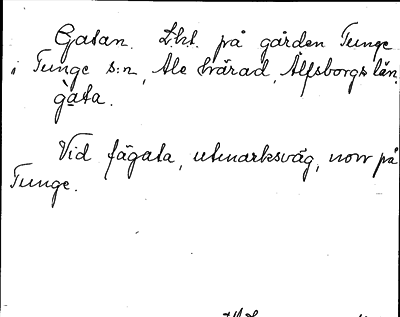 Gatan. Lht. på gården Tunge
i Tunge s:n, Ale härad, Älfsborgs län.
gàta.
Vid fägata, utmarksväg, norr på
Tunge.